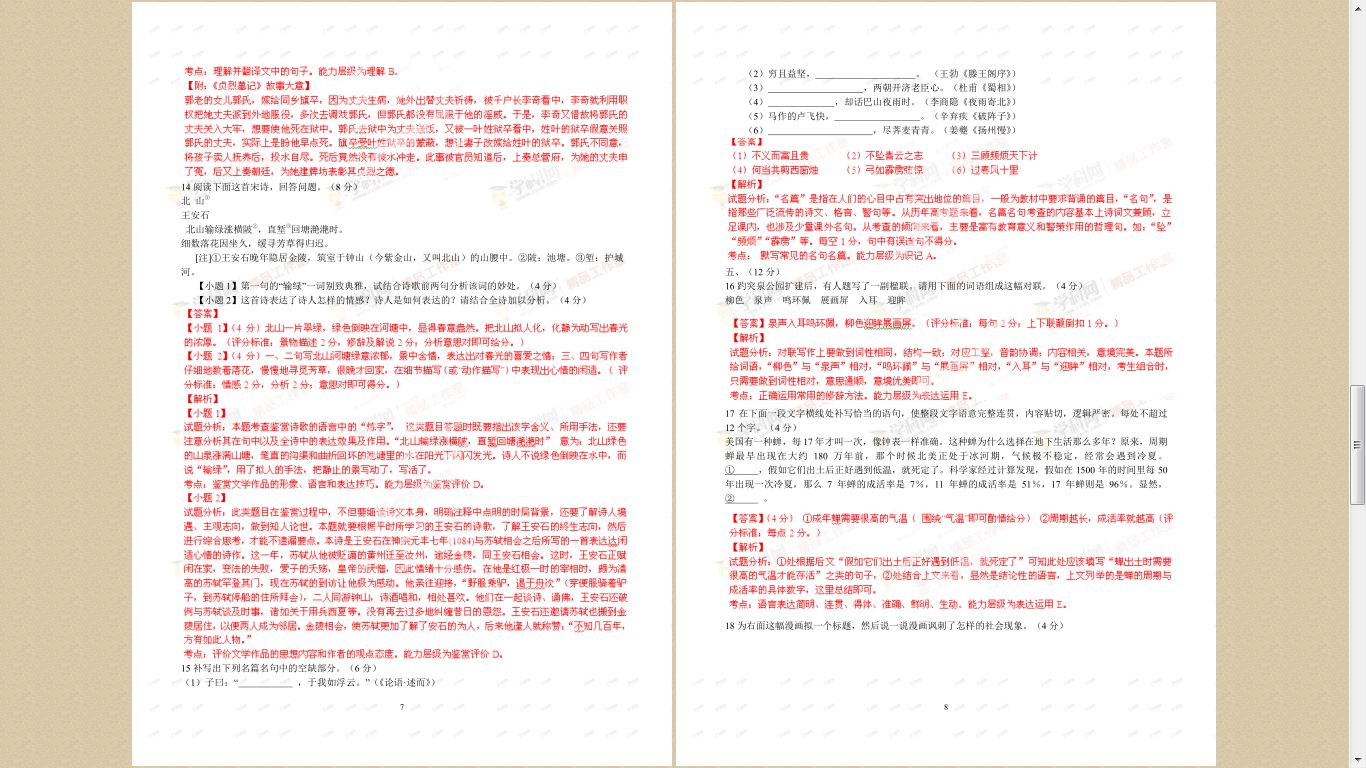 考点：理解并翻译文中的句子。能力层级为理解 B。
【附：《贞烈墓记》故事大意】
郭老的女儿郭氏，嫁给同乡旗卒，因为丈夫生病，她外出替丈夫祈祷，被千户长李奇看中，李奇就利用职
权把她丈夫派到外地服役，多次去调戏郭氏，但郭氏都没有屈服于他的淫威。于是，李奇又借故将郭氏的
丈夫关入大牢，想要使他死在狱中。郭氏去狱中为丈夫送饭，又被一叶姓狱卒看中，姓叶的狱卒假意关照
郭氏的丈夫，实际上是盼他早点死。旗卒受叶姓狱卒的蒙蔽，想让妻子改嫁给姓叶的狱卒。郭氏不同意，
将孩子卖人抚养后，投水自尽。死后竟然没有被水冲走。此事被官员知道后，上奏总管府，为她的丈夫申
了冤，后又上奏朝廷，为她建牌坊表彰其贞烈之德。
14 阅读下面这首宋诗，回答问题。（8 分）
北 山①
王安石
北山输绿涨横陂②，直堑③回塘滟滟时。
细数落花因坐久，缓寻芳草得归迟。
[注]①王安石晚年隐居金陵，筑室于钟山（今紫金山，又叫北山）的山腰中。②陂：池塘。③堑：护城
河。
【小题 1】第一句的“输绿”一词别致典雅，试结合诗歌前两句分析该词的妙处。（4 分）
【小题 2】这首诗表达了诗人怎样的情感？诗人是如何表达的？请结合全诗加以分析。（4 分）
【答案】
【小题 1】（4 分）北山一片翠绿，绿色倒映在河塘中，显得春意盎然。把北山拟人化，化静为动写出春光
的浓厚。（评分标准：景物描述 2 分，修辞及解说 2 分；分析意思对即可给分。）
【小题 2】（4 分）一、二句写北山河塘绿意浓郁，景中含情，表达出对春光的喜爱之情；三、四句写作者
仔细地数着落花，慢慢地寻觅芳草，很晚才回家，在细节描写（或“动作描写”）中表现出心情的闲适。（ 评
分标准：情感 2 分，分析 2 分；意思对即可得分。）
【解析】
【小题 1】
试题分析：本题考查鉴赏诗歌的语言中的“炼字”， 这类题目答题时既要指出该字含义、所用手法，还要
注意分析其在句中以及全诗中的表达效果及作用。“北山输绿涨横陂，直堑回塘滟滟时” 意为：北山绿色
的山泉涨满山塘，笔直的沟渠和曲折回环的池塘里的水在阳光下闪闪发光。诗人不说绿色倒映在水中，而
说“输绿”，用了拟人的手法，把静止的景写动了，写活了。
考点：鉴赏文学作品的形象、语言和表达技巧。能力层级为鉴赏评价 D。
【小题 2】
试题分析：此类题目在鉴赏过程中，不但要细读诗文本身，明确注释中点明的时局背景，还要了解诗人境
遇、主观志向，做到知人论世。本题就要根据平时所学习的王安石的诗歌，了解王安石的终生志向，然后
进行综合思考，才能不遗漏要点。本诗是王安石在神宗元丰七年(1084)与苏轼相会之后所写的一首表达达闲
适心情的诗作。这一年，苏轼从他被贬谪的黄州迁至汝州，途经金陵，同王安石相会。这时，王安石正赋
闲在家，变法的失败，爱子的夭殇，皇帝的厌憎，因此情绪十分感伤。在他是红极一时的宰相时，颇为清
高的苏轼罕登其门，现在苏轼的到访让他极为感动。他亲往迎接，“野服乘驴，谒于舟次”（穿便服骑着驴
子，到苏轼停船的住所拜会），二人同游钟山，诗酒唱和，相处甚欢。他们在一起谈诗、诵佛，王安石还破
例与苏轼谈及时事，诸如关于用兵西夏等。没有再去过多地纠缠昔日的恩怨。王安石还邀请苏轼也搬到金
陵居住，以便两人成为邻居。金陵相会，使苏轼更加了解了安石的为人，后来他逢人就称赞：“不知几百年，
方有如此人物。”
考点：评价文学作品的思想内容和作者的观点态度。能力层级为鉴赏评价 D。
15 补写出下列名篇名句中的空缺部分。（6 分）
（1）子曰：“___________ ，于我如浮云。”（《论语·述而》）
7
（2）穷且益坚，____________________。 （王勃《滕王阁序》）
（3）____________________，两朝开济老臣心。（杜甫《蜀相》）
（4）_____________，却话巴山夜雨时。（李商隐《夜雨寄北》）
（5）马作的卢飞快，_________________。（辛弃疾《破阵子》）
（6）_____________________，尽荠麦青青。（姜夔《扬州慢》）
【答案】
（1）不义而富且贵 （2）不坠青云之志 （3）三顾频烦天下计
（4）何当共剪西窗烛 （5）弓如霹雳弦惊 （6）过春风十里
【解析】
试题分析：“名篇”是指在人们的心目中占有突出地位的篇目，一般为教材中要求背诵的篇目，“名句”，是
指那些广泛流传的诗文、格言、警句等。从历年高考题来看，名篇名句考查的内容基本上诗词文兼顾，立
足课内，也涉及少量课外名句。从考查的倾向来看，主要是富有教育意义和警策作用的哲理句。如：“坠”
“频烦”“霹雳”等。每空 1 分，句中有误该句不得分。
考点： 默写常见的名句名篇。能力层级为识记 A。
五、（12 分）
16 趵突泉公园扩建后，有人题写了一副楹联。请用下面的词语组成这幅对联。（4 分）
柳色 泉声 鸣环佩 展画屏 入耳 迎眸
【答案】泉声入耳鸣环佩，柳色迎眸展画屏。（评分标准：每句 2 分；上下联颠倒扣 1 分。）
【解析】
试题分析：对联写作上要做到词性相同，结构一致；对应工整，音韵协调；内容相关，意境完美。本题所
给词语，“柳色”与“泉声”相对，“鸣环佩”与“展画屏”相对，“入耳”与“迎眸”相对，考生组合时，
只需要做到词性相对，意思通顺，意境优美即可。
考点：正确运用常用的修辞方法。能力层级为表达运用 E。
17 在下面一段文字横线处补写恰当的语句，使整段文字语意完整连贯，内容贴切，逻辑严密。每处不超过
12 个字。（4 分）
美国有一种蝉，每 17 年才叫一次，像钟表一样准确。这种蝉为什么选择在地下生活那么多年？原来，周期
蝉最早出现在大约 180 万年前，那个时候北美正处于冰河期，气候极不稳定，经常会遇到冷夏。
①_____，假如它们出土后正好遇到低温，就死定了。科学家经过计算发现，假如在 1500 年的时间里每 50
年出现一次冷夏，那么 7 年蝉的成活率是 7％，11 年蝉的成活率是 51％，17 年蝉则是 96％。显然，
②______ 。
【答案】（4 分） ①成年蝉需要很高的气温（ 围绕“气温”即可酌情给分） ②周期越长，成活率就越高（评
分标准：每点 2 分。）
【解析】
试题分析：①处根据后文“假如它们出土后正好遇到低温，就死定了”可知此处应该填写“蝉出土时需要
很高的气温才能存活”之类的句子，②处结合上文来看，显然是结论性的语言，上文列举的是蝉的周期与
成活率的具体数字，这里总结即可。
考点：语言表达简明、连贯、得体、准确、鲜明、生动。能力层级为表达运用 E。
18 为右面这幅漫画拟一个标题，然后说一说漫画讽刺了怎样的社会现象。（4 分）
8